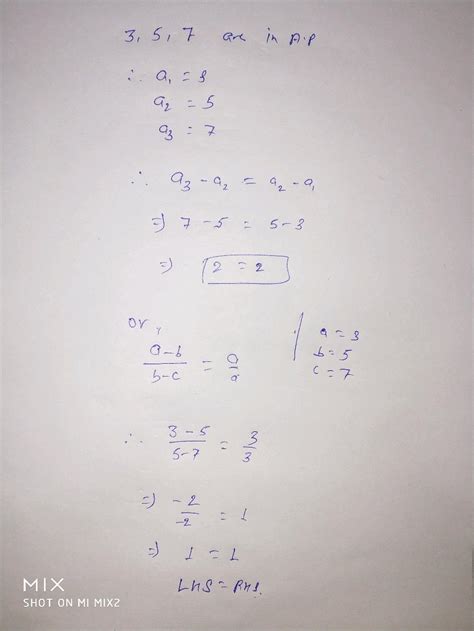 3, 5, 7 are in A.P
∴ a₁ = 3
a₂ = 5
a₃ = 7
∴ a₃ - a₂ = a₂ - a₁
⇒ 7 - 5 = 5 - 3
⇒ 2 = 2
or,
a-b/b-c = a/a
a = 3
b = 5
c = 7
∴ 3-5/5-7 = 3/3
⇒ -2/-2 = 1
⇒ 1 = 1
LHS = RHS.
MIX
SHOT ON MI MIX2